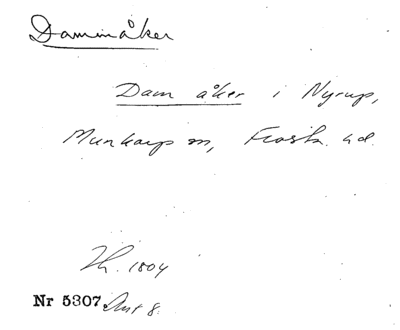 Damm åker
Dam åker i Nyrup,
Munkarp sn, Frosta hd.
Th. 1804
Nr 5307 Ant 8.